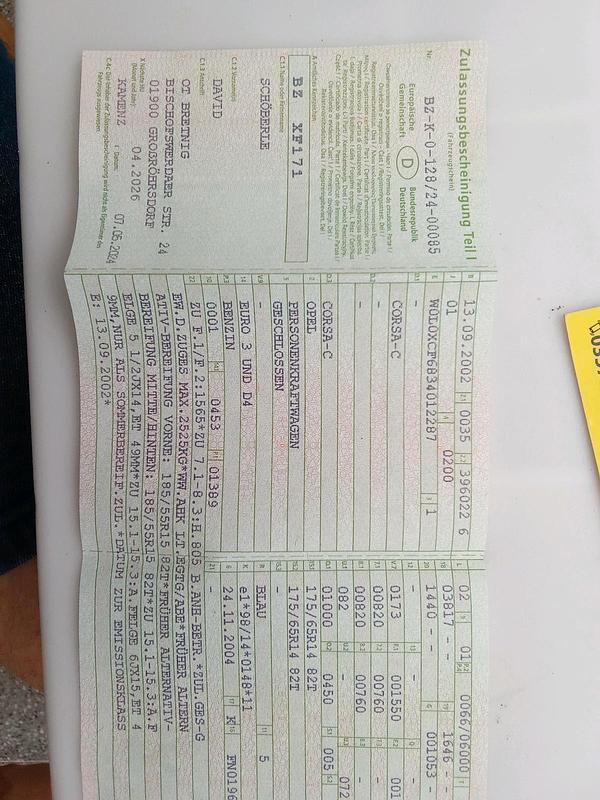 Zulassungsbescheinigung Teil I
(Fahrzeugschein)
Europäische Gemeinschaft
D
Bundesrepublik Deutschland
Nr. BZ-K-0-128/24-00085
A Amtliches Kennzeichen
BZ XF171
C.1.1 Name oder Firmenname
SCHÖBERLE
C.1.2 Vorname(n)
DAVID
C.1.3 Anschrift
OT BRETNIG
BISCHOFSWERDAER STR. 24
01900 GROßRÖHRSDORF
04.2026
KAMENZ
07.05.2024
B 13.09.2002 2.1 0035 2.2 396022 6
J 01 4 0200
E W0L0XCF6834012287 3 1
D.1 -
CORSA-C
D.2 -
-
D.3 CORSA-C
2 OPEL
5 PERSONENKRAFTWAGEN
GESCHLOSSEN
V.9 -
14 EURO 3 UND D4
P.3 BENZIN
10 0001 14.1 0453 P.1 01389
22 ZU F.1/F.2:1565*ZU 7.1-8.3:H.805 B.ANH-BETR.*ZUL.GES-G
EW.D.ZUGES MAX.2525KG*WW.AHK LT.EGTG/ABE*FRÜHER ALTERN
ATIV-BEREIFUNG VORNE: 185/55R15 82T*FRÜHER ALTERNATIV-
BEREIFUNG MITTE/HINTEN: 185/55R15 82T*ZU 15.1-15.3:A.F
ELGE 5 1/2JX14,ET 49MM*ZU 15.1-15.3:A.FELGE 6JX15,ET 4
9MM,NUR ALS SOMMERBEREIF.ZUL.*DATUM ZUR EMISSIONSKLASS
E: 13.09.2002*
L 02 9 01 P.2 0066/06000
18 03817 - - 19 1646 -
20 1440 - - G 001053 -
12 - 13 - Q -
V.7 0173 F.1 001550 F.2 001
7.1 00820 7.2 00760 7.3 -
8.1 00820 8.2 00760 8.3 -
U.1 082 U.2 - U.3 072
O.1 01000 O.2 0450 S.1 005 S.2
15.1 175/65R14 82T
15.2 175/65R14 82T
15.3 -
R BLAU 11 5
K e1*98/14*0148*11
6 24.11.2004 17 K 16 FN0196
21 -